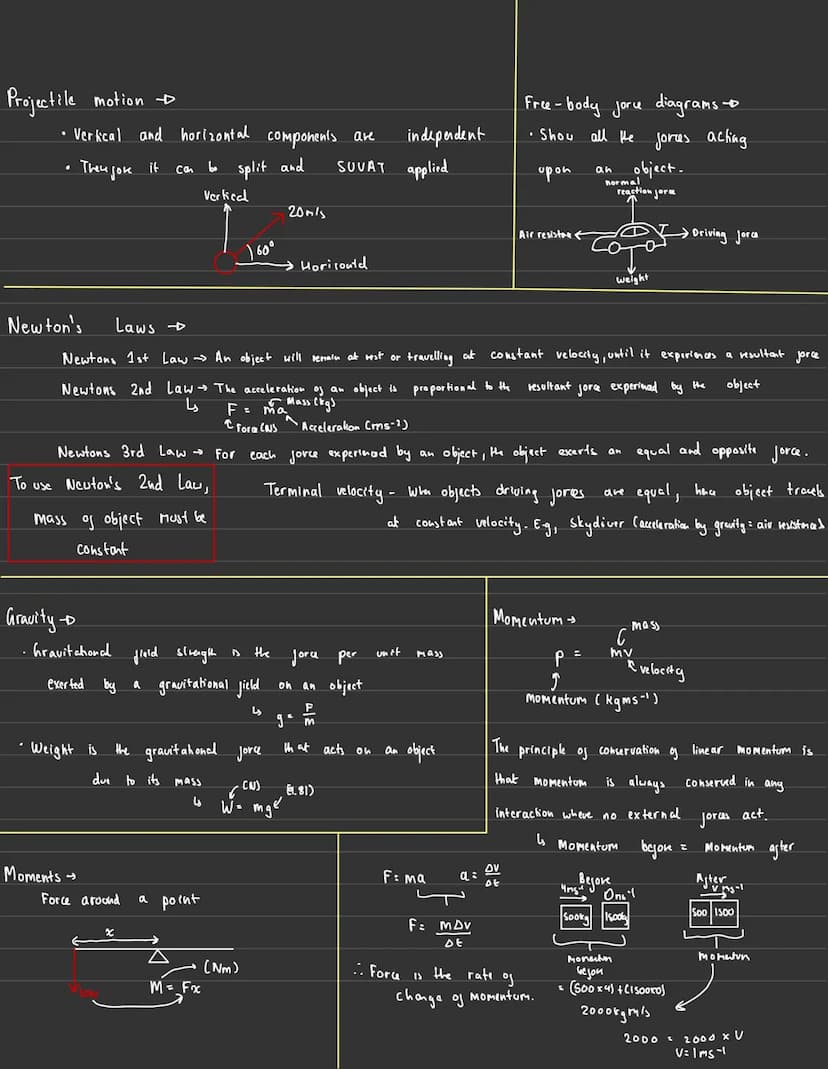 Projectile motion →
• Vertical and horizontal components are independent
• Therefore it can be split and SUVAT applied
Vertical
20m/s
60°
Horizontal
Free-body force diagrams →
• Show all the forces acting
upon an object.
normal
reaction force
Air resistance
Driving force
weight
Newton's Laws →
Newtons 1st Law → An object will remain at rest or travelling at constant velocity, until it experiences a resultant force
Newtons 2nd Law → The acceleration of an object is proportional to the resultant force experienced by the object
↳ F = ma
Mass (kg)
Force (N)
Acceleration (ms⁻²)
Newtons 3rd Law → For each force experienced by an object, the object exerts an equal and opposite force.
To use Newton's 2nd Law,
mass of object must be
constant
Terminal velocity - When objects driving forces are equal, hence object travels
at constant velocity. E.g, Skydiver (acceleration by gravity = air resistance)
Gravity →
• Gravitational field strength is the force per unit mass
exerted by a gravitational field on an object
↳ g = F/m
• Weight is the gravitational force that acts on an object
due to its mass
(N)
(9.81)
↳ W = mg
Momentum →
mass
p = mv
velocity
momentum (kgms⁻¹)
The principle of conservation of linear momentum is
that momentum is always conserved in any
interaction where no external forces act.
↳ Momentum before = Momentum after
Moments →
Force around a point
x
(Nm)
M = Fx
F = ma
a = Δv/Δt
F = mΔv/Δt
∴ Force is the rate of
change of momentum.
Before
4ms⁻¹
0ms⁻¹
500kg
1500kg
Momentum
before
= (500×4)+(1500×0)
2000kgm/s
After
v ms⁻¹
500
1500
momentum
2000 = 2000 × V
V = 1ms⁻¹